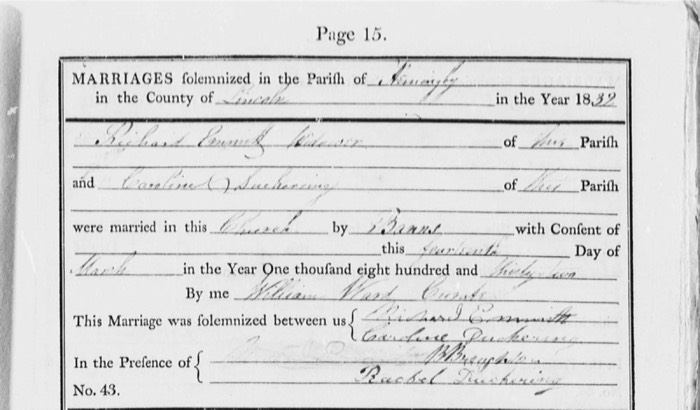 Page 15.
MARRIAGES ſolemnized in the Pariſh of
in the County of Lincoln in the Year 1832
Richard Emmitt Widower of this Pariſh
and Caroline Duckering of this Pariſh
were married in this Church by Banns with Conſent of
this fourteenth Day of
March in the Year One thouſand eight hundred and thirty two
By me William Ward Curate
This Marriage was ſolemnized between us { Richard Emmitt
Caroline Duckering
In the Preſence of {
Rachel Duckering
No. 43.